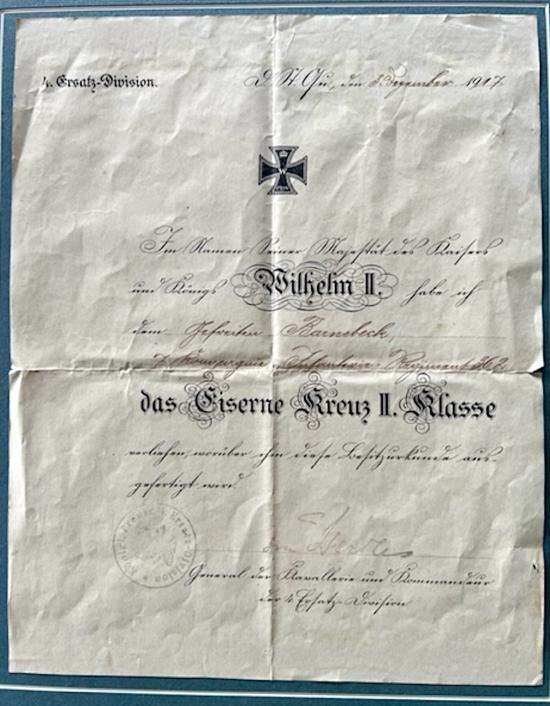 4. Ersatz-Division.
D. St. Qu., den 3. Dezember 1917
Im Namen Seiner Majestät des Kaisers
und Königs Wilhelm II. habe ich
dem Gefreiten Barnebeck,
7. Kompagnie, Infanterie-Regiment 362
das Eiserne Kreuz II. Klasse
verliehen, worüber ihm diese Besitzurkunde aus-
gefertigt wird.
General der Kavallerie und Kommandeur
der 4. Ersatz-Division